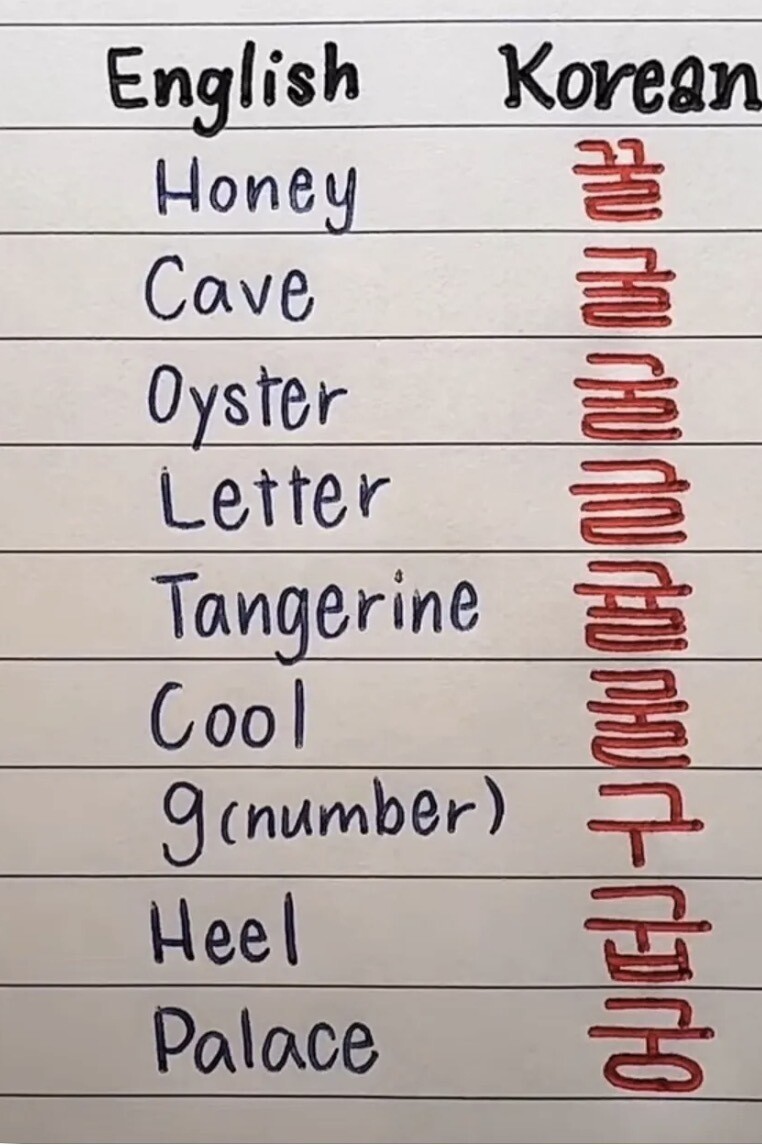 English Korean
Honey 꿀
Cave 굴
Oyster 굴
Letter 글
Tangerine 귤
Cool 쿨
9(number) 구
Heel 굽
Palace 궁